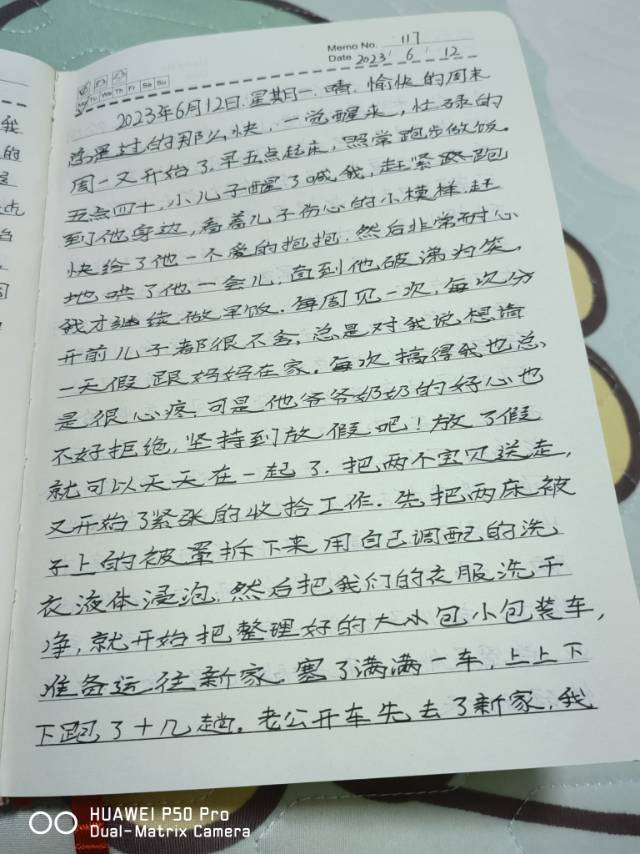 Memo No. 117
Mo Tu We Th Fr Sa Su
Date 2023 / 6 / 12
2023年6月12日.星期一.晴.愉快的周末
总是过的那么快,一觉醒来,忙碌的
周一又开始了.早五点起床,照常跑步做饭。
五点四十,小儿子醒了喊我,赶紧跑
到他身边,看着儿子伤心的小模样.赶
快给了他一个爱的抱抱.然后非常耐心
地哄了他一会儿,直到他破涕为笑,
我才继续做早饭.每周见一次,每次分
开前儿子都很不舍,总是对我说想请
一天假,跟妈妈在家.每次搞得我也总
是很心疼,可是他爷爷奶奶的好心也
不好拒绝,坚持到放假吧!放了假
就可以天天在一起了.把两个宝贝送走,
又开始了紧张的收拾工作.先把两床被
子上的被罩拆下来用自己调配的洗
衣液体浸泡.然后把我们的衣服洗干
净,就开始把整理好的大小包小包装车,
准备运往新家.塞了满满一车,上上下
下跑了十几趟。老公开车先去了新家,我
我
的
点
台
周
HUAWEI P50 Pro
Dual-Matrix Camera